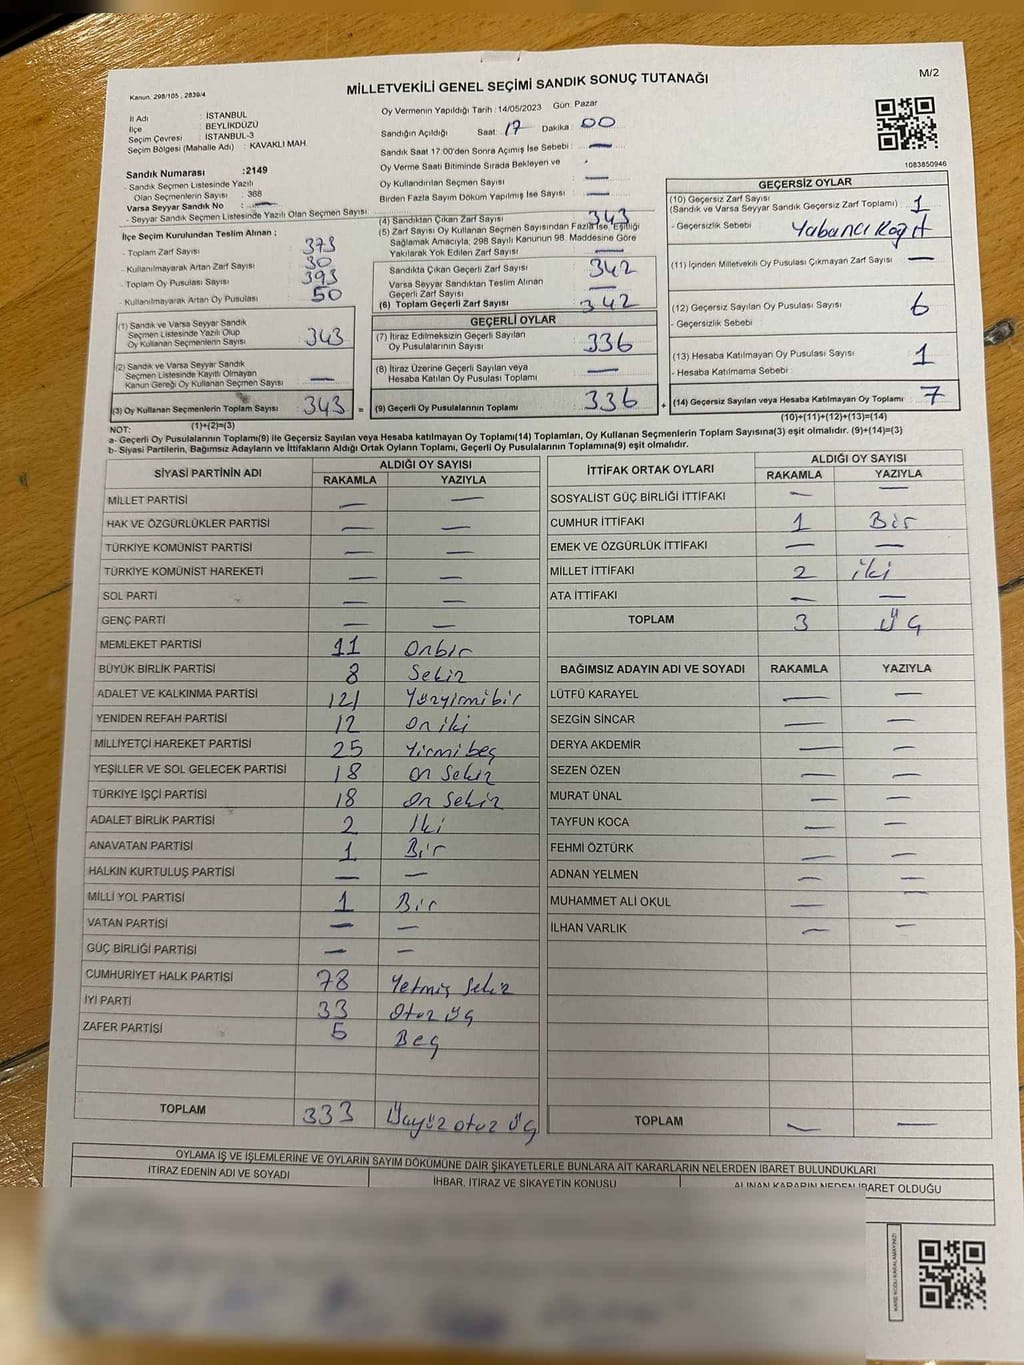 M/2
MİLLETVEKİLİ GENEL SEÇİMİ SANDIK SONUÇ TUTANAĞI
Kanun. 298/105 , 2839/4
İl Adı : İSTANBUL
İlçe : BEYLİKDÜZÜ
Seçim Çevresi : İSTANBUL-3
Seçim Bölgesi (Mahalle Adı) : KAVAKLI MAH.
Sandık Numarası :2149
- Sandık Seçmen Listesinde Yazılı
Olan Seçmenlerin Sayısı : 368
Varsa Seyyar Sandık No : —
- Seyyar Sandık Seçmen Listesinde Yazılı Olan Seçmen Sayısı
İlçe Seçim Kurulundan Teslim Alınan ;
- Toplam Zarf Sayısı : 373
- Kullanılmayarak Artan Zarf Sayısı : 30
- Toplam Oy Pusulası Sayısı : 393
- Kullanılmayarak Artan Oy Pusulası : 50
(1) Sandık ve Varsa Seyyar Sandık
Seçmen Listesinde Yazılı Olup
Oy Kullanan Seçmenlerin Sayısı : 343
(2) Sandık ve Varsa Seyyar Sandık
Seçmen Listesinde Kayıtlı Olmayan
Kanun Gereği Oy Kullanan Seçmen Sayısı : —
(3) Oy Kullanan Seçmenlerin Toplam Sayısı : 343 =
(1)+(2)=(3)
Oy Vermenin Yapıldığı Tarih : 14/05/2023 Gün: Pazar
Sandığın Açıldığı Saat: 17 Dakika : 00
Sandık Saat 17:00'den Sonra Açımış İse Sebebi : —
Oy Verme Saati Bitiminde Sırada Bekleyen ve
Oy Kullandırılan Seçmen Sayısı : —
Birden Fazla Sayım Döküm Yapılmış İse Sayısı : —
(4) Sandıktan Çıkan Zarf Sayısı : 343
(5) Zarf Sayısı Oy Kullanan Seçmen Sayısından Fazla İse, Eşitliği
Sağlamak Amacıyla, 298 Sayılı Kanunun 98. Maddesine Göre
Yakılarak Yok Edilen Zarf Sayısı : —
Sandıkta Çıkan Geçerli Zarf Sayısı : 342
Varsa Seyyar Sandıktan Teslim Alınan
Geçerli Zarf Sayısı : —
(6) Toplam Geçerli Zarf Sayısı : 342
GEÇERLİ OYLAR
(7) İtiraz Edilmeksizin Geçerli Sayılan
Oy Pusulalarının Sayısı : 336
(8) İtiraz Üzerine Geçerli Sayılan veya
Hesaba Katılan Oy Pusulası Toplamı : —
(9) Geçerli Oy Pusulalarının Toplamı : 336 +
1083850946
GEÇERSİZ OYLAR
(10) Geçersiz Zarf Sayısı
(Sandık ve Varsa Seyyar Sandık Geçersiz Zarf Toplamı) : 1
- Geçersizlik Sebebi : Yabancı Kağıt
(11) İçinden Milletvekili Oy Pusulası Çıkmayan Zarf Sayısı : —
(12) Geçersiz Sayılan Oy Pusulası Sayısı : 6
- Geçersizlik Sebebi :
(13) Hesaba Katılmayan Oy Pusulası Sayısı : 1
- Hesaba Katılmama Sebebi :
(14) Geçersiz Sayılan veya Hesaba Katılmayan Oy Toplamı : 7
(10)+(11)+(12)+(13)=(14)
NOT:
a- Geçerli Oy Pusulalarının Toplamı(9) ile Geçersiz Sayılan veya Hesaba katılmayan Oy Toplamı(14) Toplamları, Oy Kullanan Seçmenlerin Toplam Sayısına(3) eşit olmalıdır. (9)+(14)=(3)
b- Siyasi Partilerin, Bağımsız Adayların ve İttifakların Aldığı Ortak Oyların Toplamı, Geçerli Oy Pusulalarının Toplamına(9) eşit olmalıdır.
SİYASİ PARTİNİN ADI ALDIĞI OY SAYISI
RAKAMLA YAZIYLA
MİLLET PARTİSİ — —
HAK VE ÖZGÜRLÜKLER PARTİSİ — —
TÜRKİYE KOMÜNİST PARTİSİ — —
TÜRKİYE KOMÜNİST HAREKETİ — —
SOL PARTİ — —
GENÇ PARTİ — —
MEMLEKET PARTİSİ 11 Onbir
BÜYÜK BİRLİK PARTİSİ 8 Sekiz
ADALET VE KALKINMA PARTİSİ 121 Yüzyirmibir
YENİDEN REFAH PARTİSİ 12 On iki
MİLLİYETÇİ HAREKET PARTİSİ 25 Yirmi beş
YEŞİLLER VE SOL GELECEK PARTİSİ 18 On Sekiz
TÜRKİYE İŞÇİ PARTİSİ 18 On Sekiz
ADALET BİRLİK PARTİSİ 2 İki
ANAVATAN PARTİSİ 1 Bir
HALKIN KURTULUŞ PARTİSİ — —
MİLLİ YOL PARTİSİ 1 Bir
VATAN PARTİSİ — —
GÜÇ BİRLİĞİ PARTİSİ — —
CUMHURİYET HALK PARTİSİ 78 Yetmiş Sekiz
İYİ PARTİ 33 Otuz üç
ZAFER PARTİSİ 5 Beş
TOPLAM 333 Üçyüz otuz üç
İTTİFAK ORTAK OYLARI ALDIĞI OY SAYISI
RAKAMLA YAZIYLA
SOSYALİST GÜÇ BİRLİĞİ İTTİFAKI — —
CUMHUR İTTİFAKI 1 Bir
EMEK VE ÖZGÜRLÜK İTTİFAKI — —
MİLLET İTTİFAKI 2 iki
ATA İTTİFAKI — —
TOPLAM 3 Üç
BAĞIMSIZ ADAYIN ADI VE SOYADI RAKAMLA YAZIYLA
LÜTFÜ KARAYEL — —
SEZGİN SİNCAR — —
DERYA AKDEMİR — —
SEZEN ÖZEN — —
MURAT ÜNAL — —
TAYFUN KOCA — —
FEHMİ ÖZTÜRK — —
ADNAN YELMEN — —
MUHAMMET ALİ OKUL — —
İLHAN VARLIK — —
TOPLAM — —
OYLAMA İŞ VE İŞLEMLERİNE VE OYLARIN SAYIM DÖKÜMÜNE DAİR ŞİKAYETLERLE BUNLARA AİT KARARLARIN NELERDEN İBARET BULUNDUKLARI
İTİRAZ EDENİN ADI VE SOYADI İHBAR, İTİRAZ VE ŞİKAYETİN KONUSU ALINAN KARARIN NEDEN İBARET OLDUĞU